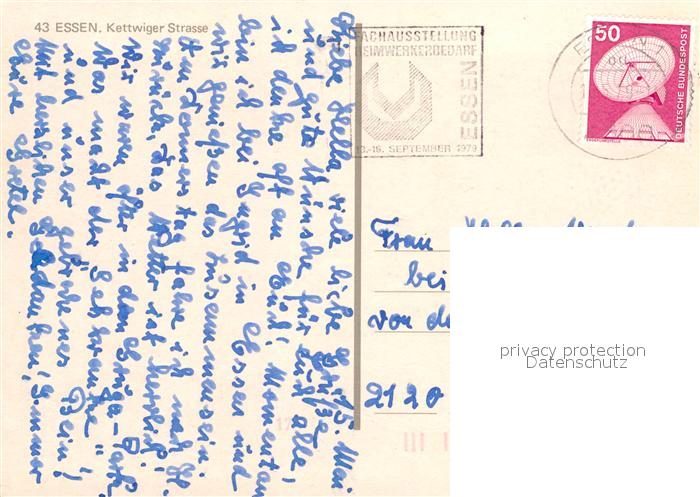 43 ESSEN, Kettwiger Strasse
FACHAUSSTELLUNG
HEIMWERKERBEDARF
ESSEN
13.-19. SEPTEMBER 1979
50
DEUTSCHE BUNDESPOST
15. Mai
Liebe Hella, viele liebe Grüße
und gute Wünsche für Euch alle!
ich denke oft an Euch! Momentan
bin ich bei Sigrid in Essen und
wir genießen das Zusammensein.
Am Donnerstag fahre ich nach
zurück. Das Wetter ist herrlich!
Wir waren öfter in dem Gruga-Park.
Was macht der "Schwenke"
und unser gebrochenes Bein!
Mit herzlichen Gedanken! Immer
Deine Grete.
Frau
bei
von de
2120
privacy protection
Datenschutz